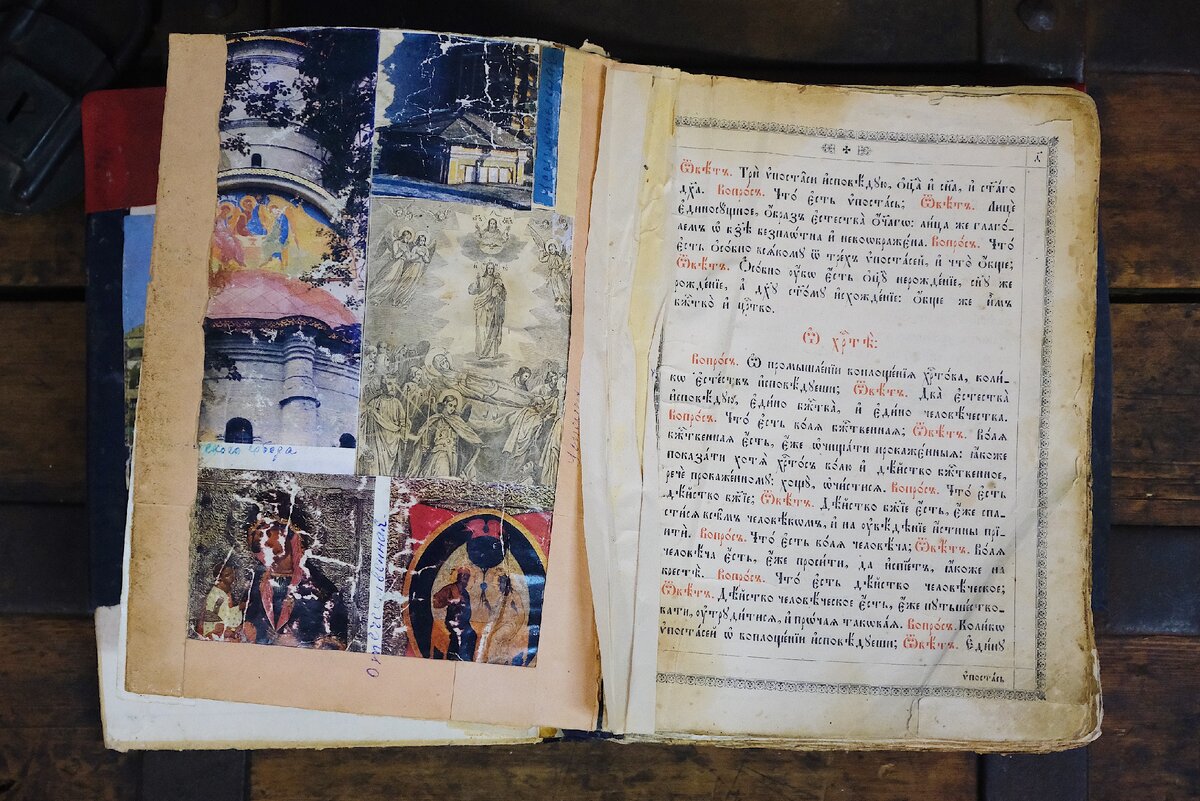 ѿвѣ́тъ. Трѝ ѵ҆поста̑си и҆сповѣ́дую, ѻ҆ц҃а̀ и҆ сн҃а, и҆ ст҃а́го
дх҃а. Вопро́съ. Что́ є҆сть ѵ҆поста́сь; ѿвѣ́тъ. Лицѐ
є҆диносꙋ́щное, ѡ҆́бразъ є҆стества̀ ѻ҆́ч҃агѡ: лица́ же глаго́-
лемъ ѡ҆ бз҃ѣ безпло́тна и҆ невоѡбраже́на. Вопро́съ. Что̀
є҆́сть ѻ҆со́бно всѧ́комꙋ ѿ тре́хъ ѵ҆поста́сей, и҆ что̀ ѻ҆́бще;
ѿвѣ́тъ. Ѻ҆со́бно ᲂу҆́бѡ є҆́сть ѻ҆ц҃ꙋ̀ нерожде́нїе, сн҃ꙋ же
рожде́нїе, а҆ дх҃ꙋ ст҃о́мꙋ и҆схожде́нїе: ѻ҆́бще же и҆̀мъ
бж҃тво̀ и҆ ца҇рство.
Ѡ҆ хр҇тѣ̀:
Вопро́съ. Ѡ҆ промышле́нїи воплоще́нїѧ хр҇то́ва, коли́-
кѡ є҆сте́ствъ и҆сповѣ́дꙋеши; ѿвѣ́тъ. Два̀ є҆стества̀
и҆сповѣ́дꙋю, є҆ди́но бж҃тва̀, и҆ є҆ди́но человѣ́чества.
Вопро́съ. Что̀ є҆́сть во́лѧ бж҃твеннаѧ; ѿвѣ́тъ. Во́лѧ
бж҃твеннаѧ є҆́сть, є҆́же ѡ҆чища́ти прокаже́нныѧ: ꙗ҆́коже
показа́ти хотѧ̀ хр҇то́съ во́лю и҆ дѣ́йство бж҃твенное,
речѐ прокаже́нномꙋ: хощꙋ̀, ѡ҆чи́стисѧ. Вопро́съ. Что̀ є҆́сть
дѣ́йство бж҃їе; ѿвѣ́тъ. Дѣ́йство бж҃їе є҆́сть, є҆́же спа-
сти́сѧ всѣ́мъ человѣ́кѡмъ, и҆ на ᲂу҆вѣдѣ́нїе и҆́стины прї-
итѝ. Вопро́съ. Что̀ є҆́сть во́лѧ человѣ́ча; ѿвѣ́тъ. Во́лѧ
человѣ́ча є҆́сть, є҆́же проси́ти, да и҆спїе́тъ, ꙗ҆́коже на
крестѣ̀. Вопро́съ. Что̀ є҆́сть дѣ́йство человѣ́ческое;
ѿвѣ́тъ. Дѣ́йство человѣ́ческое є҆́сть, є҆́же пꙋтьше́ство-
вати, ᲂу҆трꙋди́тисѧ, и҆ про́чаѧ такова́ѧ. Вопро́съ. Коли́кѡ
ѵ҆поста́сей ѡ҆ воплоще́нїи и҆сповѣ́дꙋеши; ѿвѣ́тъ. Є҆ди́нꙋ
ѵ҆поста́сь